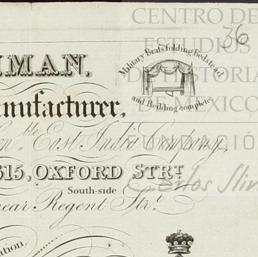 CENTRO DE
ESTUDIOS
DE HISTORIA
DE MÉXICO
FUNDACIÓN
Carlos Slim
36
MAN,
Military Brass folding Bedstead,
and Bedding complete
nufacturer,
East India Company,
515, OXFORD STRT
South-side
near Regent Strt.